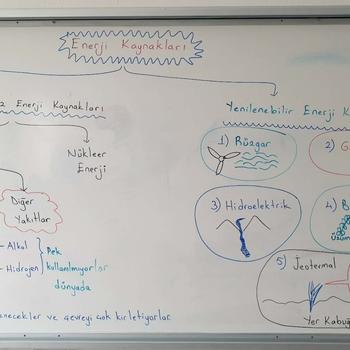 Enerji Kaynakları
Enerji Kaynakları
Nükleer
Enerji
Diğer
Yakıtlar
- Alkol
- Hidrojen
Pek
kullanılmıyorlar
dünyada
ve çevreyi çok kirletiyorlar
Yenilenebilir Enerji K
1) Rüzgar
2) G
3) Hidroelektrik
4) B
5) Jeotermal
Yer Kabuğ